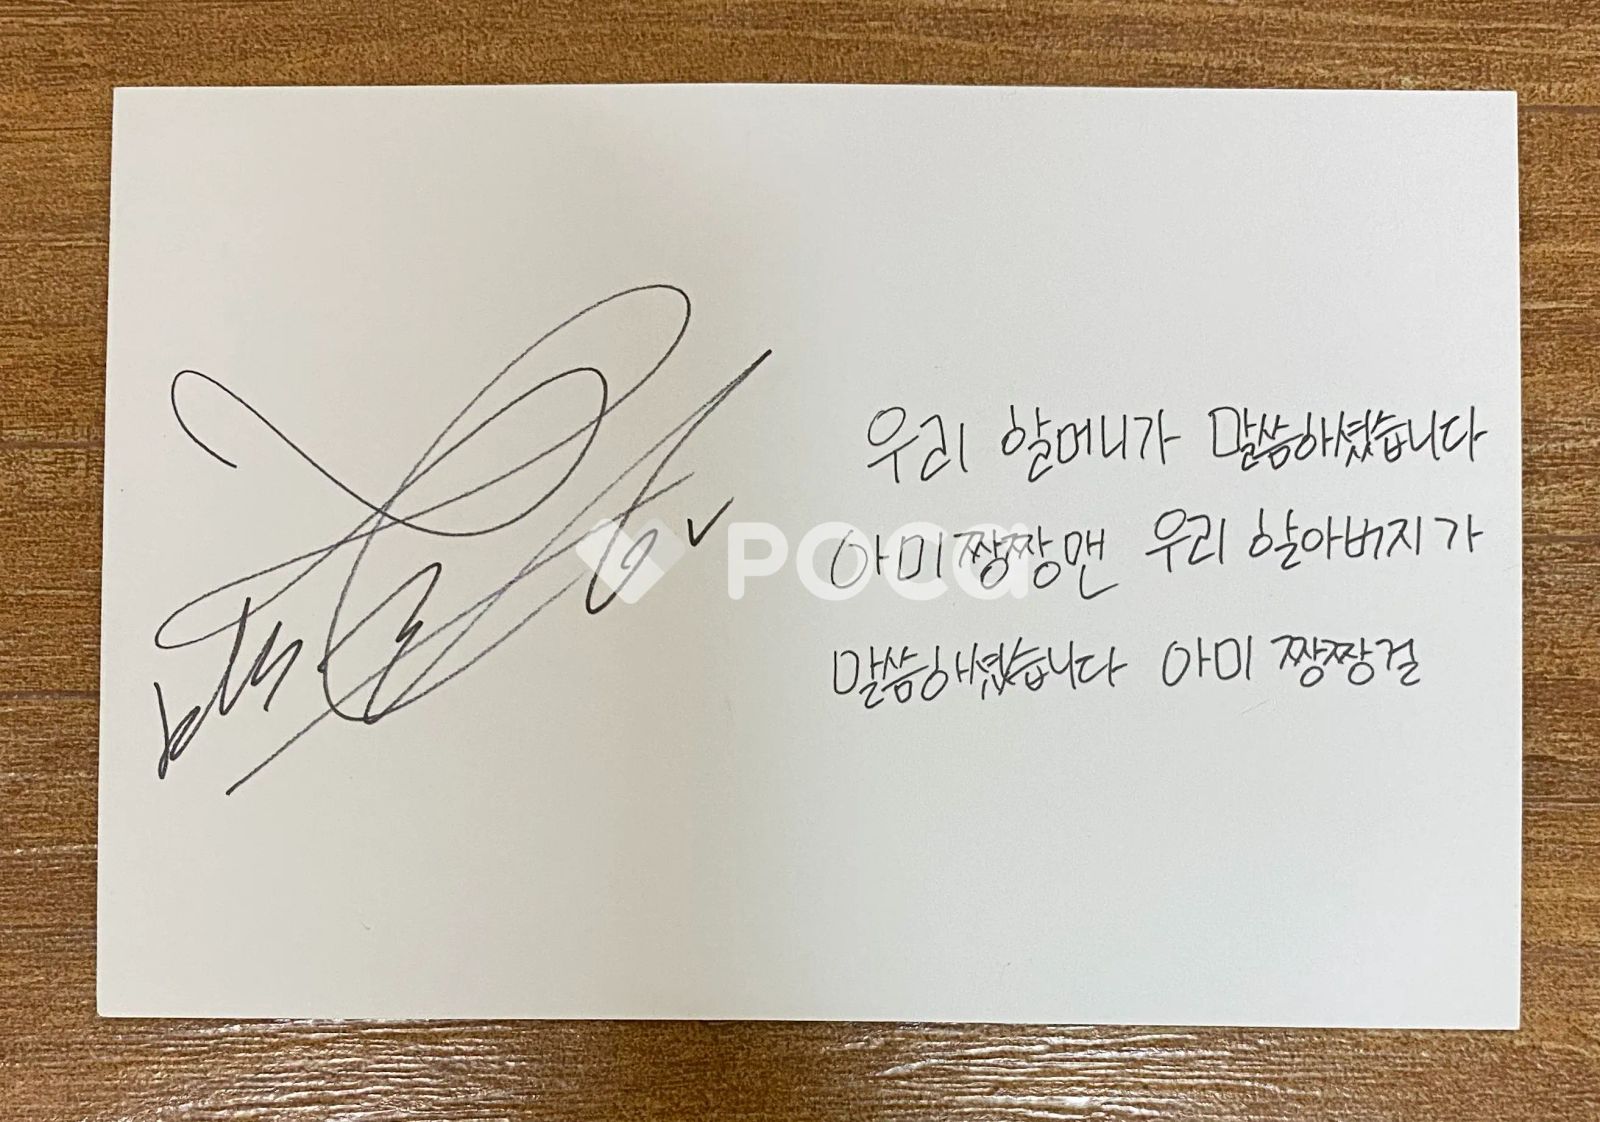 우리 할머니가 말씀하셨습니다
아미짱짱맨 우리 할아버지가
말씀하셨습니다 아미 짱짱걸
POCA